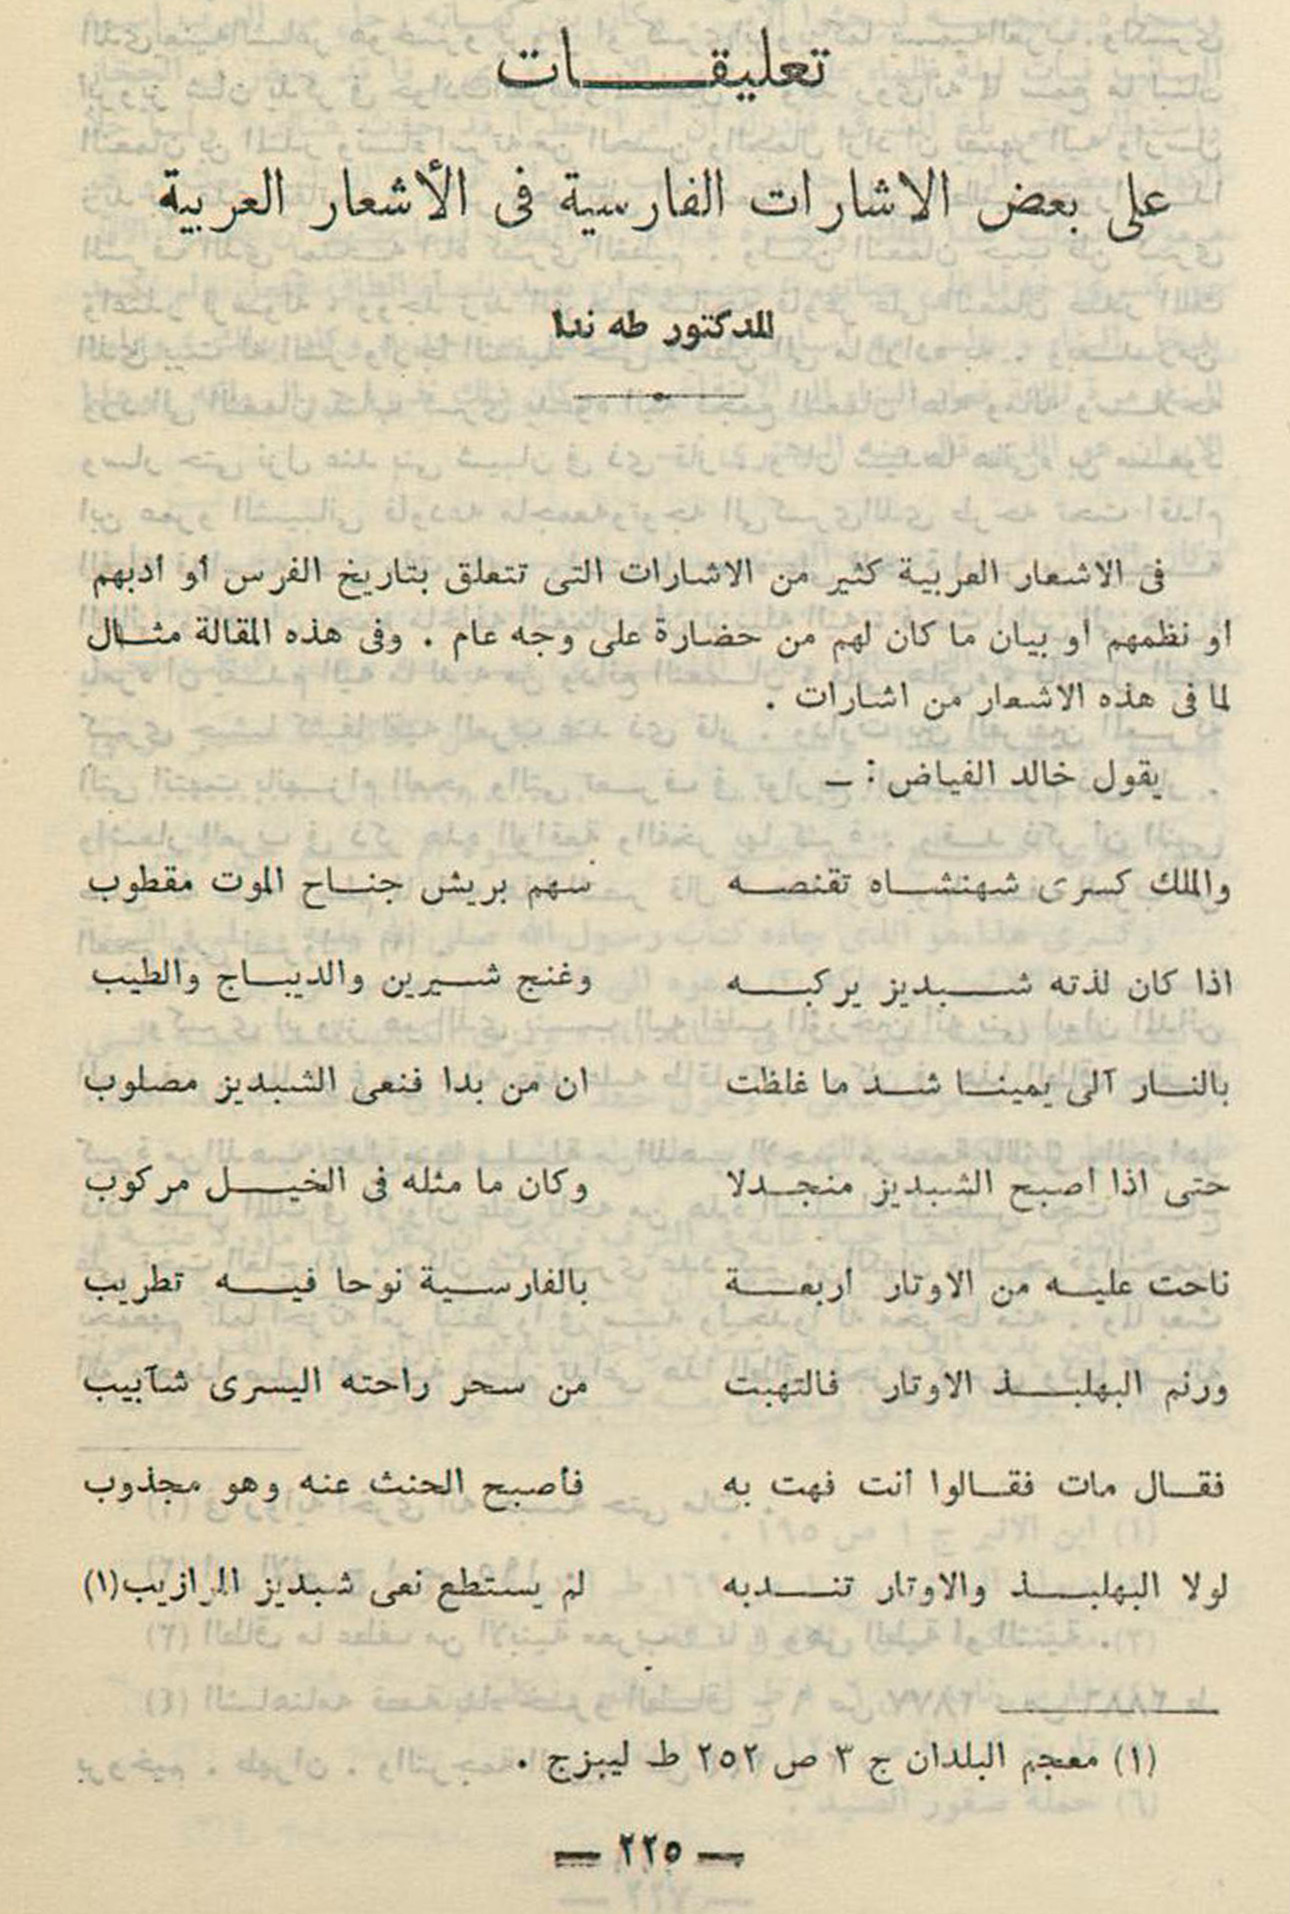 تعليقات
على بعض الاشارات الفارسية فى الأشعار العربية
للدكتور طه ندا
فى الاشعار العربية كثير من الاشارات التى تتعلق بتاريخ الفرس أو أدبهم
أو نظمهم أو بيان ما كان لهم من حضارة على وجه عام . وفى هذه المقالة مثال
لما فى هذه الاشعار من اشارات .
يقول خالد الفياض : ـ
والملك كسرى شهنشاه تقنصه سهم بريش جناح الموت مقطوب
اذا كان لذته شبديز يركبه وغنج شيرين والديباج والطيب
بالنار آلى يمينا شد ما غلظت ان من بدا فنعى الشبديز مصلوب
حتى اذا أصبح الشبديز منجدلا وكان ما مثله فى الخيل مركوب
ناحت عليه من الاوتار أربعة بالفارسية نوحا فيه تطريب
ورنم البهلبذ الاوتار فالتهبت من سحر راحته اليسرى شآبيب
فقال مات فقالوا أنت فهت به فأصبح الحنث عنه وهو مجذوب
لولا البهلبذ والاوتار تندبه لم يستطع نعى شبديز المرازيب(١)
(١) معجم البلدان ج ٣ ص ٢٥٢ ط ليبزج .
— ٢٢٥ —